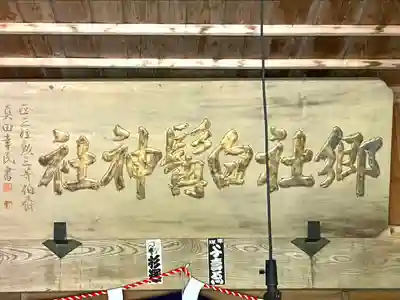 郷社白鬚神社
正三位勲三等伯爵
真田幸民書